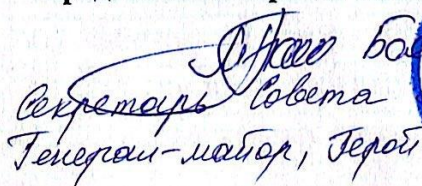 Бол
Секретарь Совета
Генерал-майор, Герой